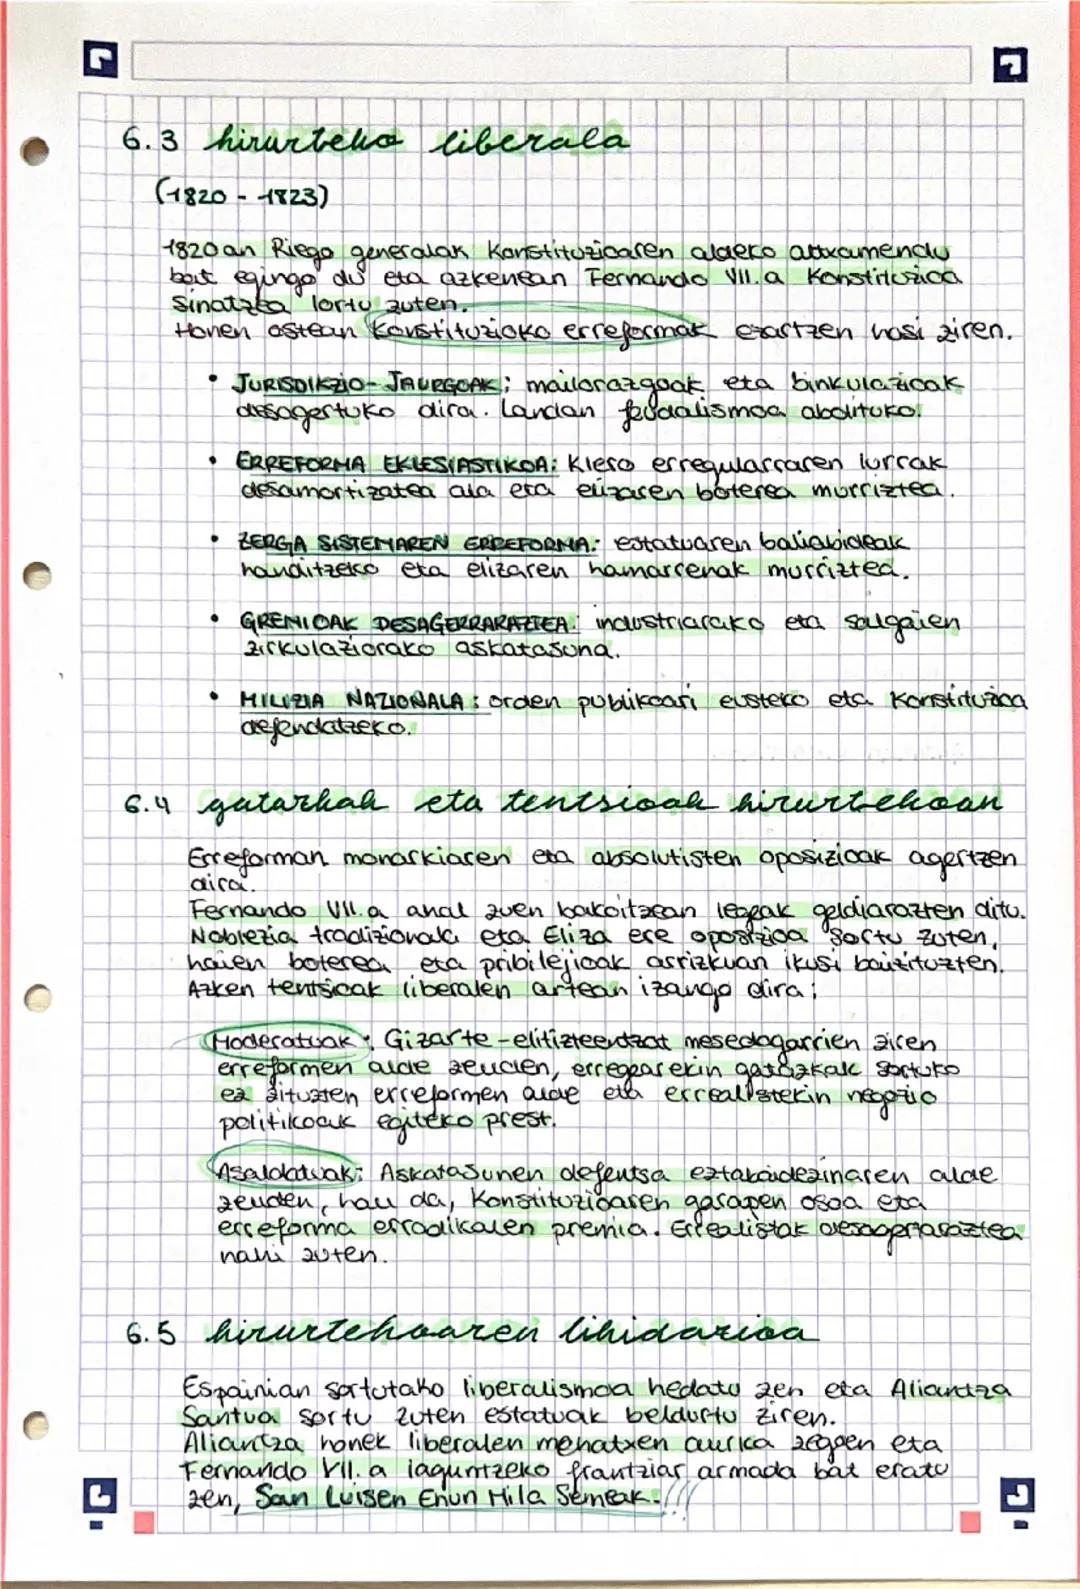 6.3 hirurteko liberala
(1820 - 1823)
1820an Riego generalak Konstituzioaren aldeko altxamendu
bat egingo du eta azkenean Fernando VII.a Konstituzioa
sinatzea lortu zuten.
Honen ostean Konstituzioko erreformak ezartzen hasi ziren.
• JURISDIKZIO-JAURGOAK; mailorazgoak eta binkulazioak
desagertuko dira. Landan feudalismoa abolituko.
• ERREFORMA EKLESIASTIKOA: Klero erregularraren lurrak
desamortizatea ala eta elizaren boterea murriztea.
• ZERGA SISTEMAREN ERREFORMA: estatuaren baliabideak
handitzeko eta elizaren hamarrenak murriztea.
• GREMIOAK DESAGERRARAZTEA: industriarako eta salgaien
zirkulaziorako askatasuna.
• MILIZIA NAZIONALA: orden publikoari eusteko eta Konstituzioa
defendatzeko.
6.4 gatazkak eta tentsioak hirurtekoan
Erreforman monarkiaren eta absolutisten oposizioak agertzen
dira.
Fernando VII.a ahal zuen bakoitzean legeak geldiarazten ditu.
Noblezia tradizionala eta Eliza ere oposizioa sortu zuten,
haien boterea eta pribilejioak arriskuan ikusi baitzituzten.
Azken tentsioak liberalen artean izango dira;
Moderatuak: Gizarte-elitizteentzat mesedagarrien ziren
erreformen alde zeuden, erregearekin gatazkak sortuko
ez zituzten erreformen alde eta errealistekin negozio
politikoak egiteko prest.
Asaldatuak: Askatasunen defentsa eztabaidezinaren alde
zeuden, hau da, Konstituzioaren garapen osoa eta
erreforma erradikalen premia. Errealistak desagerraraztea
nahi zuten.
6.5 hirurtekoaren likidazioa
Espainian sortutako liberalismoa hedatu zen eta Aliantza
Santua sortu zuten estatuak beldurtu ziren.
Aliantza honek liberalen mehatxen aurka zegoen eta
Fernando VII.a laguntzeko frantziar armada bat eratu
zen, San Luisen Ehun Mila Semeak.